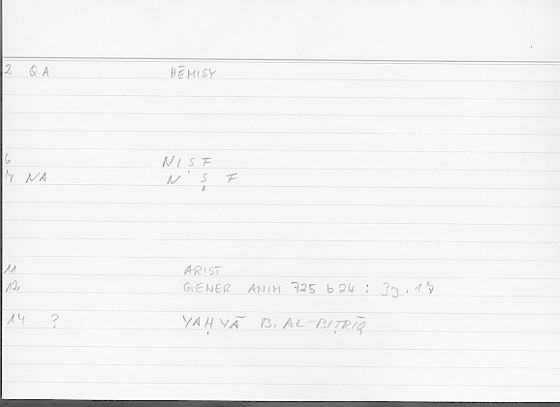 2 QA HĒMISY
6 NIṢF
7 NA N Ṣ F
11 ARIST
12 GENER ANIM 725 b 24 : 39.17
14 ? YAḤYĀ B. AL-BIṬRĪQ